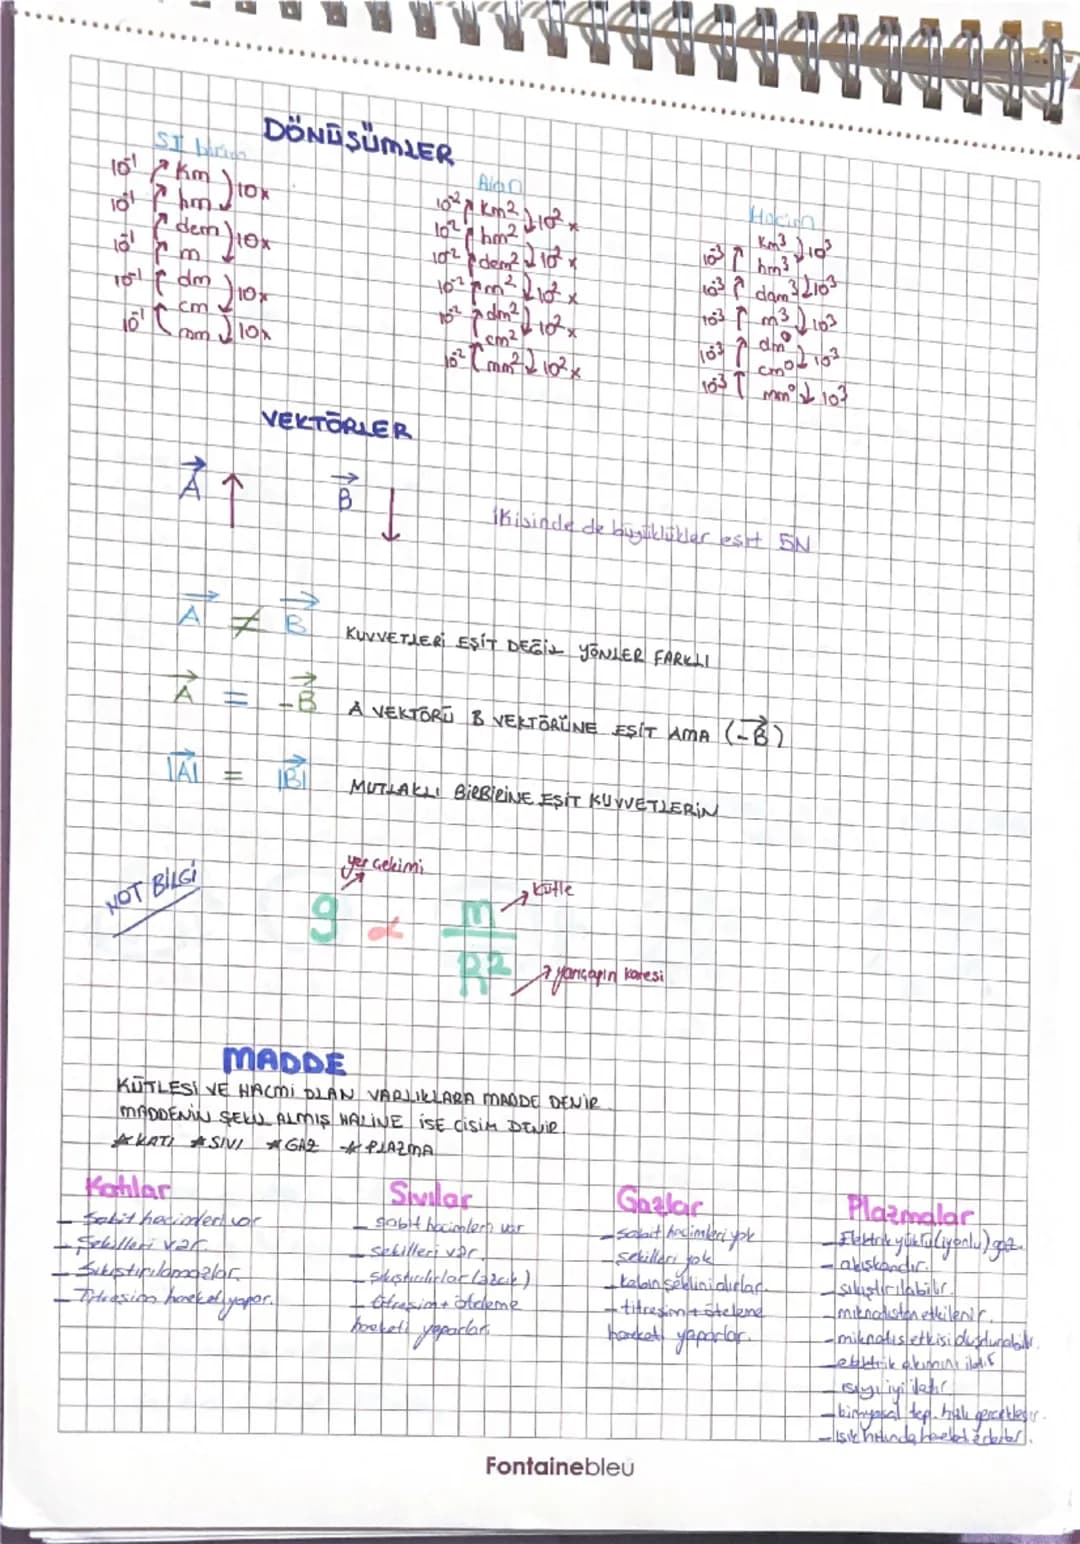 DÖNÜŞÜMLER
SI birim
10⁻¹ km 10x
10⁻¹ hm
10⁻¹ dem 10x
m
10⁻¹ dm 10x
cm
10⁻¹ mm 10x
Alan
10⁻² km² 10² x
10⁻² hm²
10⁻² dem² 10² x
10⁻² m² 10² x
10⁻² dm² 10² x
cm²
10⁻² mm² 10² x
Hacim
km³ 10³
10⁻³ hm³
10⁻³ dam³ 10³
10⁻³ m³ 10³
10⁻³ dm³ 10³
cm³
10⁻³ mm³ 10³
VEKTÖRLER
A B
İkisinde de büyüklükler eşit 5N
A ≠ B KUVVETLERİ EŞİT DEĞİL YÖNLER FARKLI
A = -B A VEKTÖRÜ B VEKTÖRÜNE EŞİT AMA (-B)
|A| = |B| MUTLAKLI BİRBİRİNE EŞİT KUVVETLERİN
NOT BİLGİ
yer çekimi
g α m kütle
R² yarıçapın karesi
MADDE
KÜTLESİ VE HACMİ OLAN VARLIKLARA MADDE DENİR.
MADDENİN ŞEKİL ALMIŞ HALİNE İSE CİSİM DENİR.
*KATI *SIVI *GAZ *PLAZMA
Katılar
- Sabit hacimleri var
- Şekilleri var.
- Sıkıştırılamazlar.
- Titreşim hareket yapar.
Sıvılar
- sabit hacimleri var
- sekilleri var.
- sıkıştırılırlar (azcık)
- titreşim + öteleme
hareketi yaparlar.
Gazlar
- sabit hacimleri yok
- sekilleri yok
- kabın şeklini alırlar.
- titresim + öteleme
hareketi yaparlar.
Plazmalar
- Elektrik yüklü (iyonlu) gaz.
- akışkandır.
- sıkıştırılabilir.
- mıknatıstan etkilenir.
- mıknatıs etkisi oluşturabilir.
- elektrik akımını iletir
- ısıyı iyi iletir
- kimyasal tep. hızlı gerçekleşir.
- ışık hızında hareket edebilir.
Fontainebleu